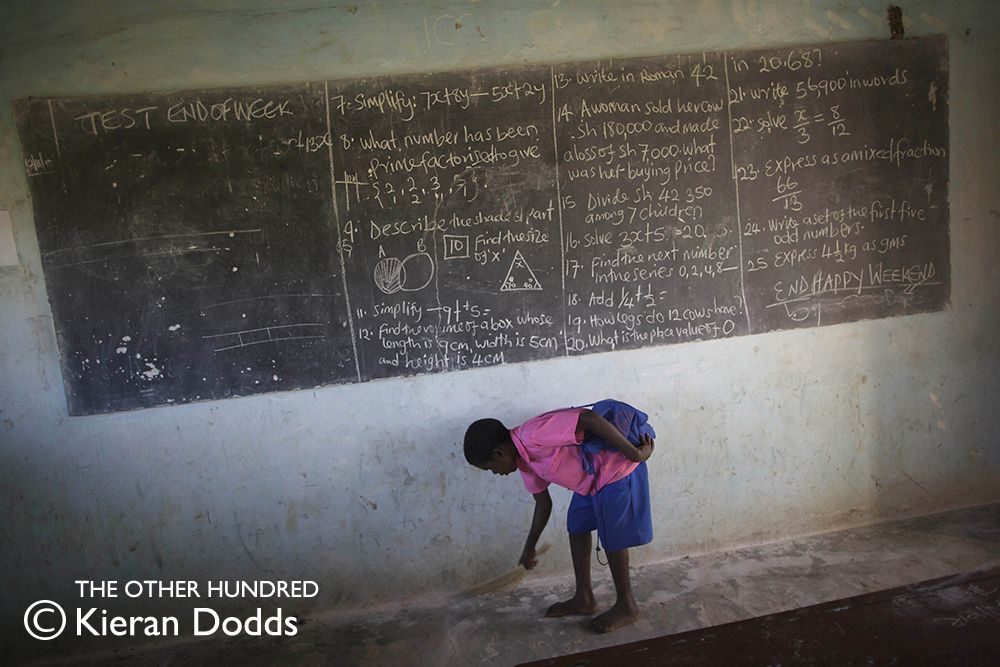 TEST END OF WEEK
7. Simplify: 7x+8y — 5x+2y
8. What number has been
Prime factorised to give
9. Describe the shaded part
A
B
10
Find the size
of 'x'
x
11. simplify —9t+5=
12. Find the volume of a box whose
length is 9cm, width is 5cm
and height is 4CM
13. Write in Roman 42
14. A woman sold her cow
Sh 180,000 and made
a loss of Sh 7,000. What
was her buying price?
15. Divide Sh 42 350
among 7 children
16. Solve 3x+5 =20
17. Find the next number
in the series 0, 2, 4, 8—
18. Add ¼+½=
19. How legs do 12 cows have?
20. What is the place value of 0
in 20.68?
21. Write 56900 in words
22. solve x/3 = 8/12
23. Express as a mixed fraction
66/13
24. Write a set of the first five
odd numbers.
25. Express 4½kg as gms
END HAPPY WEEKEND
THE OTHER HUNDRED
© Kieran Dodds